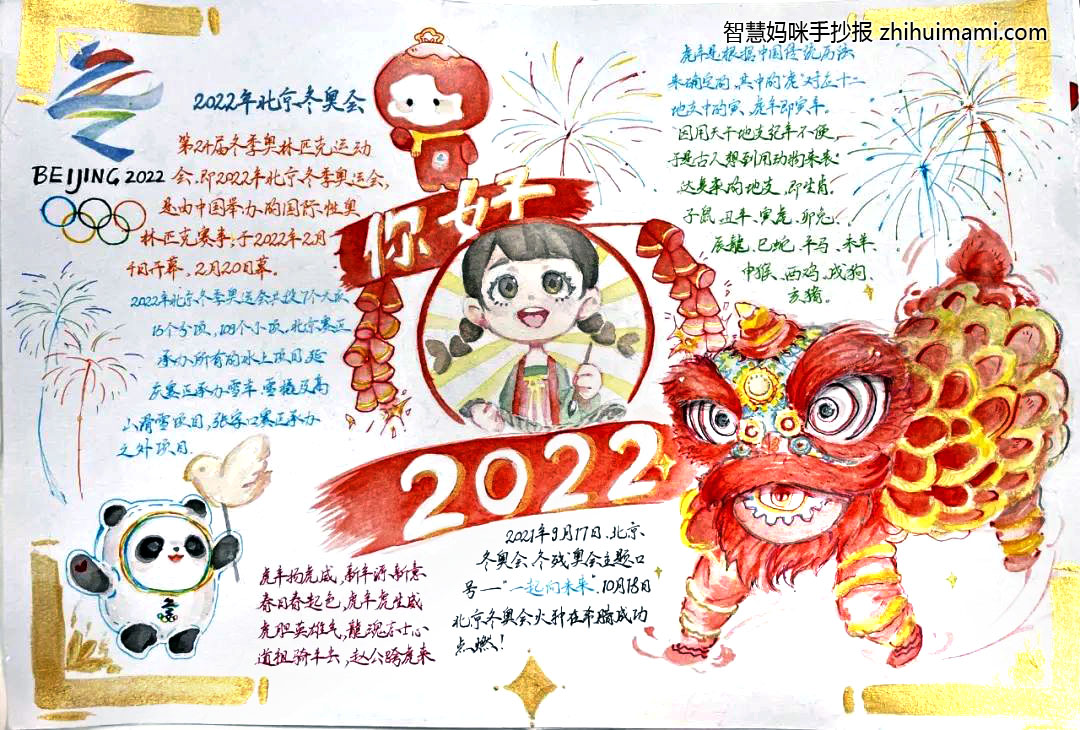 智慧妈咪手抄报 zhihuimami.com
2022年北京冬奥会
BEIJING 2022
第24届冬季奥林匹克运动
会,即2022年北京冬季奥运会,
是由中国举办的国际性奥
林匹克赛事,于2022年2月
4日开幕,2月20日幕.
2022年北京冬季奥运会共设7个大项
15个分项,109个小项,北京赛区
承办所有的冰上项目,延
庆赛区承办雪车、雪橇及高
山滑雪项目,张家口赛区承办
之外项目.
你好
2022
虎年是根据中国传统历法
来确定的,其中的"虎"对应十二
地支中的寅,虎年即寅年.
因用天干地支纪年不便,
于是古人想到用动物来表
达复杂的地支,即生肖.
子鼠、丑牛、寅虎、卯兔、
辰龍、巳蛇、午马、未羊、
申猴、酉鸡、戌狗、
亥猪。
虎年扬虎威,新年添新意
春日春起色,虎年虎生威
虎胆英雄气,龍魂志士心
道祖骑牛去,赵公跨虎来
2021年9月17日,北京
冬奥会、冬残奥会主题口
号一"一起向未来".10月18日
北京冬奥会火种在希腊成功
点燃!